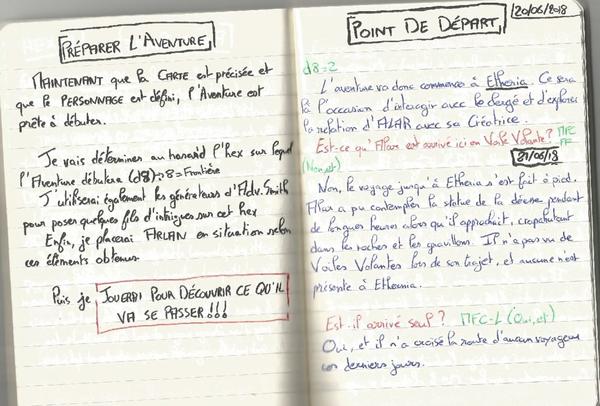 PRÉPARER L'AVENTURE
MAINTENANT que la CARTE est précisée et
que le PERSONNAGE est défini, l'Aventure est
prête à débuter.
Je vais déterminer au hasard l'hex sur lequel
l'Aventure débutera (d8) → 8 = Frontière
J'utiliserai également les générateurs d'Adv. Smith
pour poser quelques fils d'intrigues sur cet hex
Enfin, je placerai en situation selon
ces éléments obtenus.
Puis je JOUERAI POUR DÉCOUVRIR CE QU'IL
VA SE PASSER!!!
POINT DE DÉPART
20/06/2018
d8=2
L'aventure va donc commencer à Etheria. Ce sera
là l'occasion d'interagir avec le clergé et d'explorer
la relation d'ALAR avec sa Créatrice.
Est-ce qu'Alar est arrivé ici en Voile Volante? MFC
FF
21/06/18
(Non, et)
Non, le voyage jusqu'à Etheria s'est fait à pied.
Alar a pu contempler la statue de la déesse pendant
de longues heures alors qu'il approchait, crapahutant
dans les roches et les gravillons. Il n'a pas vu de
Voiles Volantes lors de son trajet, et aucune n'est
présente à Etheria.
Est-il arrivé seul? MFC-L (Oui, et)
Oui, et il n'a croisé la route d'aucun voyageur
ces derniers jours.